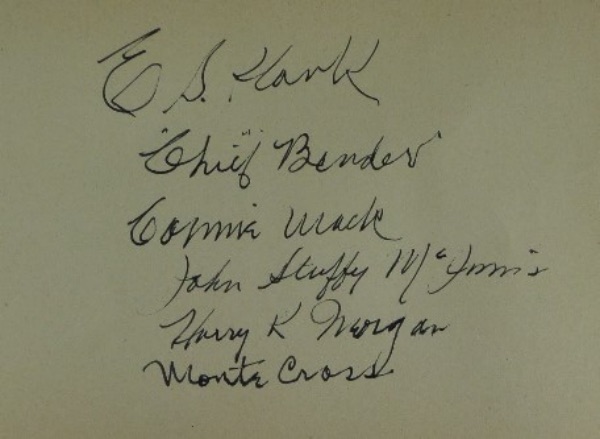 E S. Plank
"Chief" Bender
Connie Mack
John Stuffy McInnis
Harry K Morgan
Monte Cross